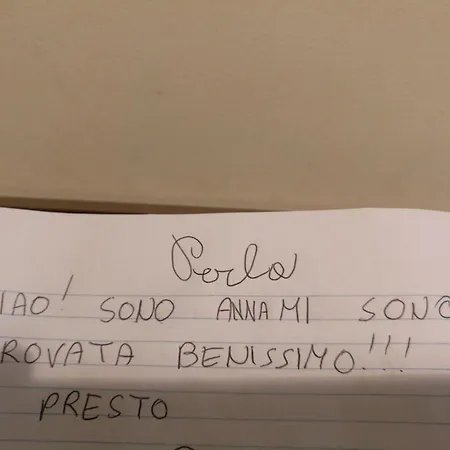 Perla
IAO! SONO ANNA MI SONO
ROVATA BENISSIMO!!!
PRESTO